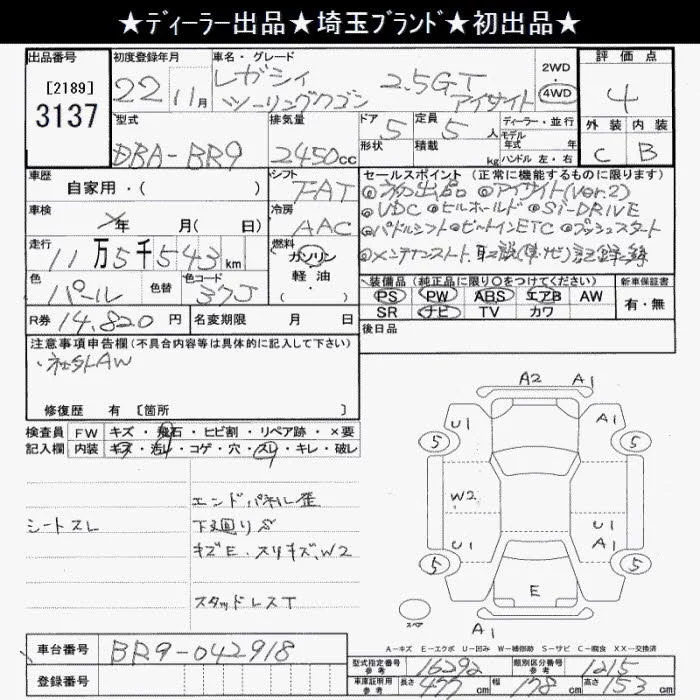 ★ディーラー出品★埼玉ブランド★初出品★
出品番号
[2189]
3137
初度登録年月
22年11月
車名・グレード
レガシィ 2.5GT
ツーリングワゴン アイサイト
2WD
・
4WD
評価点
4
外装 内装
C B
型式
DBA-BR9
排気量
2450cc
ドア
5
形状
定員
5人
積載
kg
ディーラー・並行
モデル
年式 年
ハンドル 左・右
車歴
自家用・( )
シフト
FAT
車検
年 月( 日)
冷房
AAC
走行
11万5千543km
燃料
ガソリン
・
軽・油
・( )
色
パール
色替
色コード
37J
R券 14,820円
名変期限 月 日
セールスポイント(正常に機能するものに限ります)
◎初出品 ◎アイサイト(Ver.2)
◎VDC ◎ヒルホールド ◎Si-DRIVE
◎パドルシフト ◎ビートインETC ◎プッシュスタート
◎メンテナンスノート、取説(車・ナビ)記録簿
装備品(純正品に限り○をつけてください)
PS PW ABS エアB AW
SR ナビ TV カワ
新車保証書
有・無
後日品
注意事項申告欄(不具合内容等は具体的に記入して下さい)
・社外AW
修復歴 有 [箇所 ]
検査員
記入欄
FW キズ・飛石・ヒビ割・リペア跡・×要
内装 キズ・汚レ・コゲ・穴・スリ・キレ・破レ
シートスレ
エンドパネル歪
下廻りS
キズE・スリキズ、W2
スタッドレスT
A2 A1
U1 A1
5 5
W2
U1 U1
A1
5 5
E
スペア
A1
A-キズ E-エクボ U-凹み W-補修跡 S-サビ C-腐食 XX-交換済
車台番号 BR9-042918
登録番号
型式指定番号
参考
16292
類別区分番号
参考
1215
車庫証明用
参考
長さ 477cm
幅 178cm
高さ 153cm